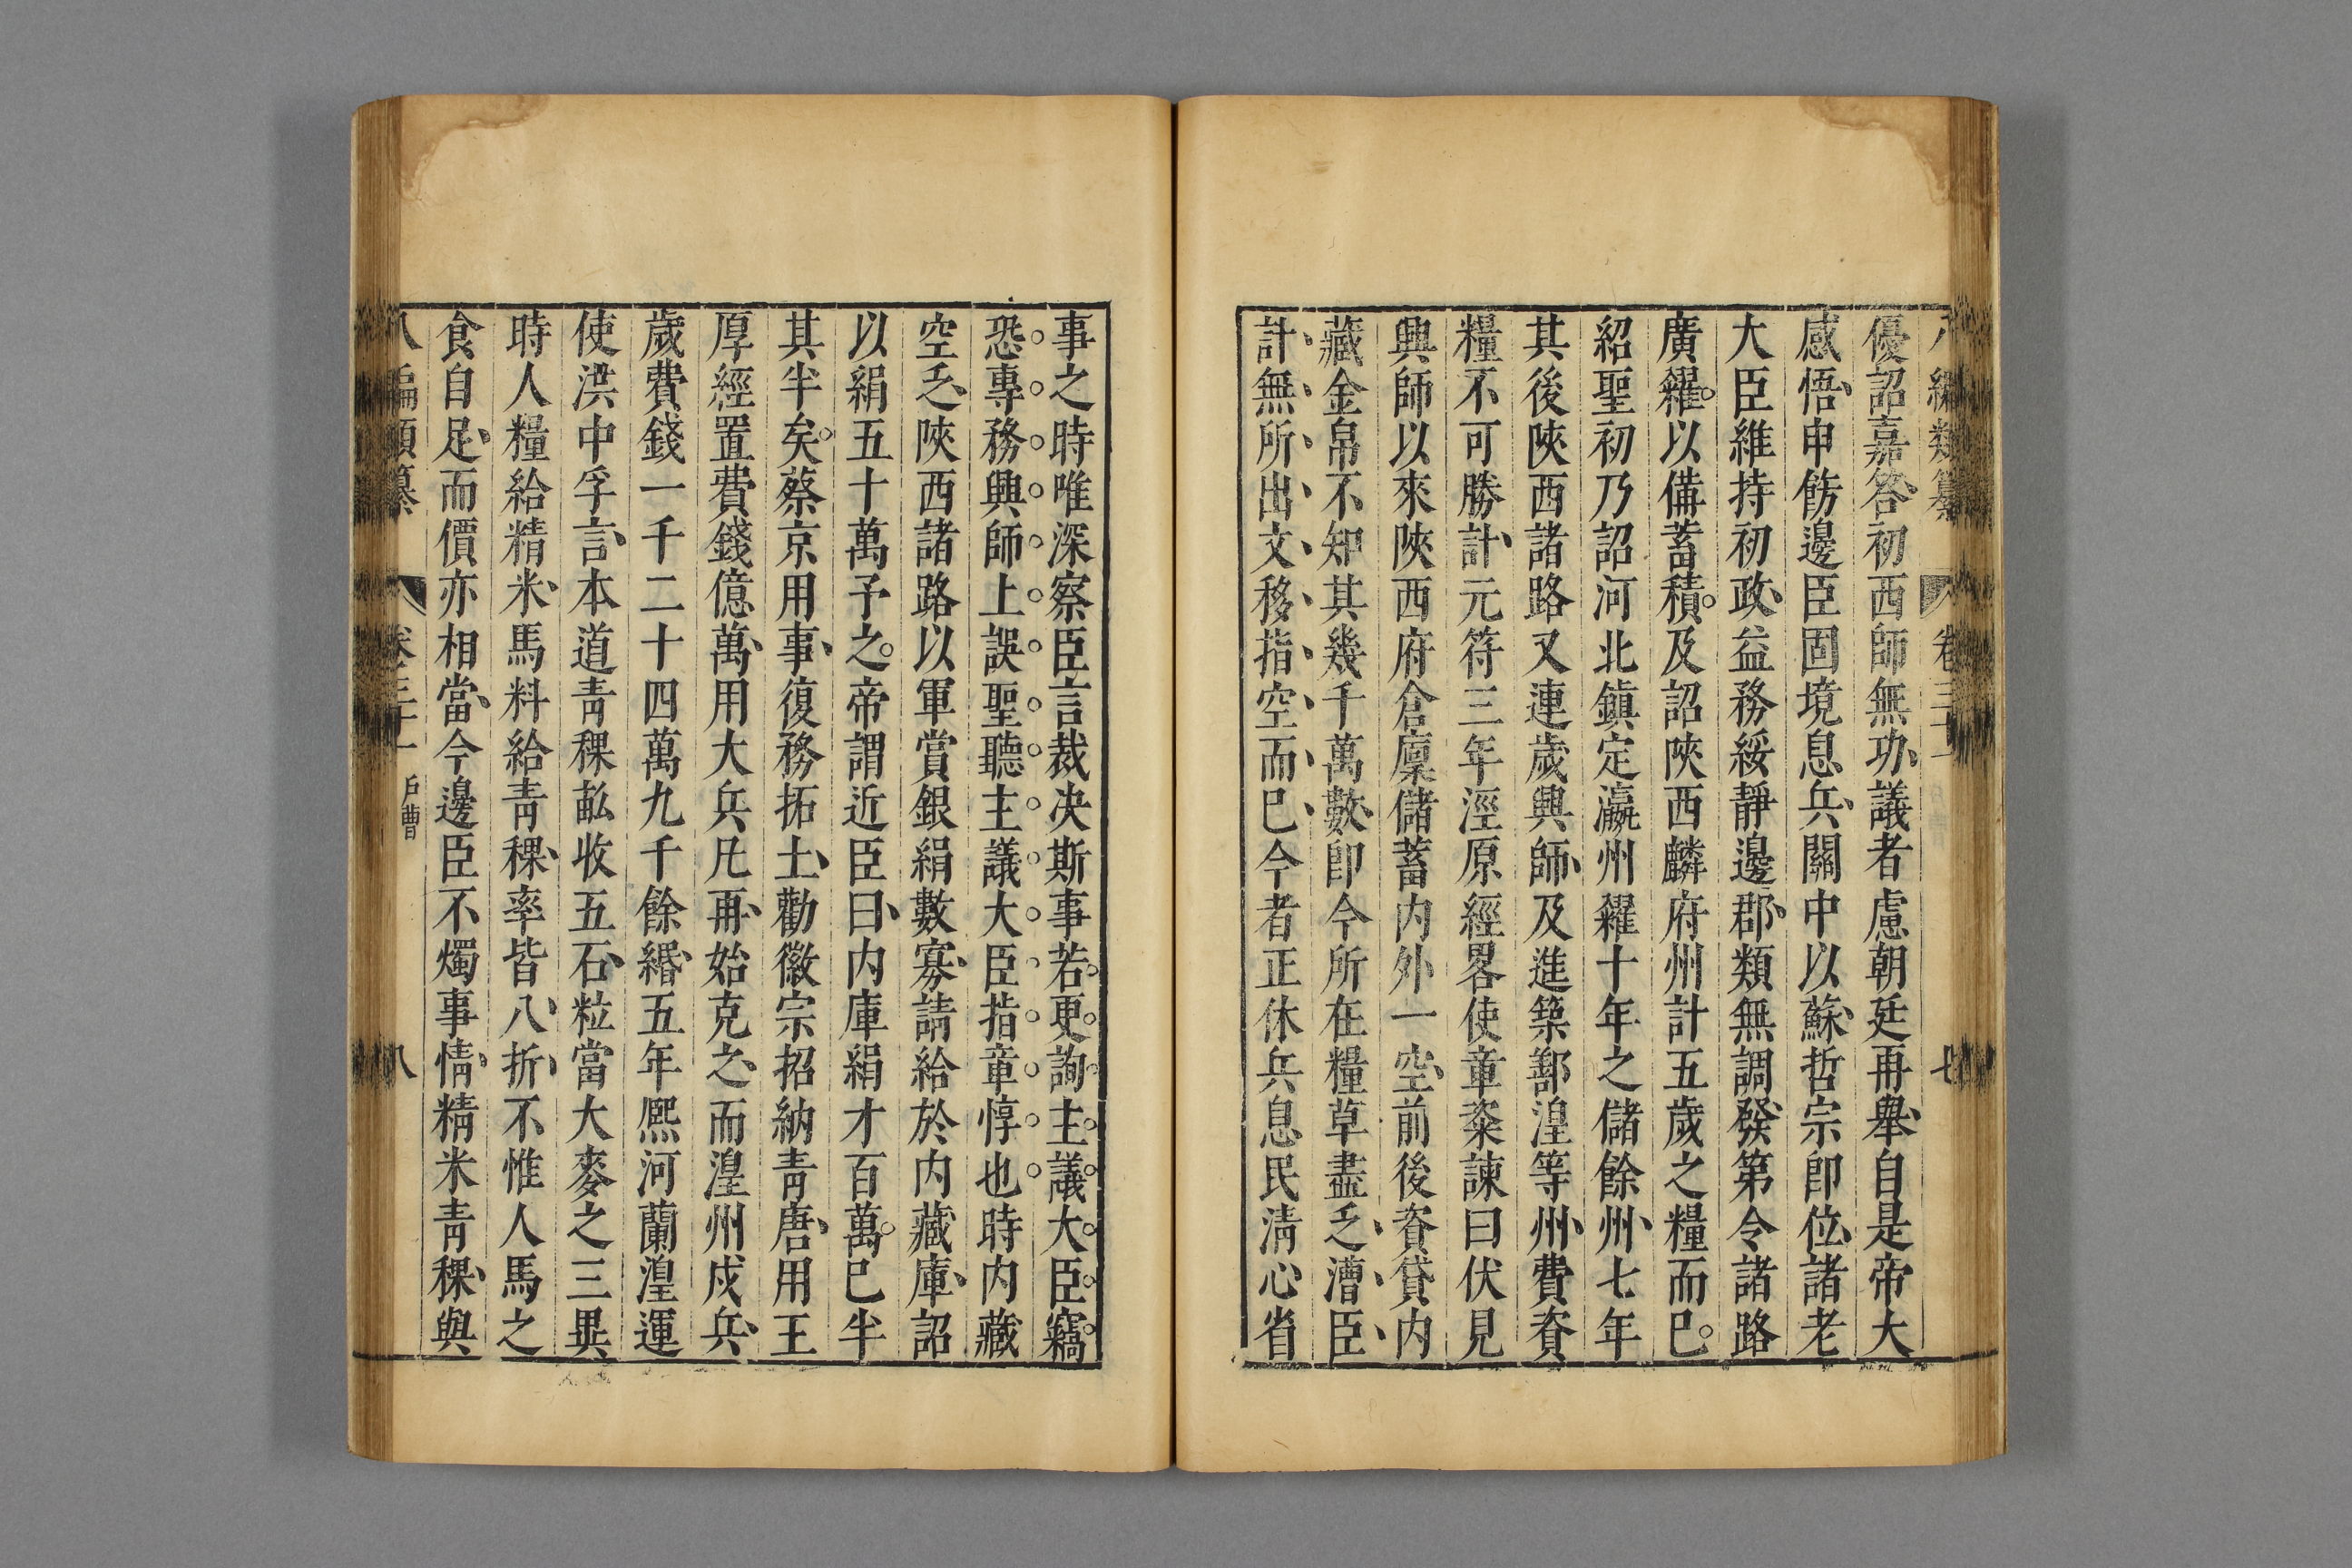 八編類纂 卷三十一 七
優詔嘉答初西師無功議者慮朝廷再舉自是帝大
感悟申飭邊臣固境息兵關中以蘇哲宗即位諸老
大臣維持初政益務綏靜邊郡類無調發第令諸路
廣糴以備蓄積及詔陜西麟府州計五歲之糧而已
紹聖初乃詔河北鎮定瀛州糴十年之儲餘州七年
其後陜西諸路又連歲興師及進築鄯湟等州費資
糧不可勝計元符三年涇原經畧使章楶諫曰伏見
興師以來陜西府倉廩儲蓄内外一空前後資貸内
藏金帛不知其幾千萬數即今所在糧草盡乏漕臣
計無所出文移指空而已今者正休兵息民淸心省
事之時唯深察臣言裁决斯事若更詢主議大臣竊
恐專務興師上誤聖聽主議大臣指章惇也時内藏
空乏陜西諸路以軍賞銀絹數寡請給於内藏庫詔
以絹五十萬予之帝謂近臣曰内庫絹才百萬已半
其半矣蔡京用事復務拓土勸徽宗招納靑唐用王
厚經置費錢億萬用大兵凡再始克之而湟州戍兵
歲費錢一千二十四萬九千餘緡五年熈河蘭湟運
使洪中孚言本道靑稞畝收五石粒當大麥之三異
時人糧給精米馬料給靑稞率皆八折不惟人馬之
食自足而價亦相當今邊臣不燭事情精米靑稞與
八編類纂 卷三十一 戶曹 八